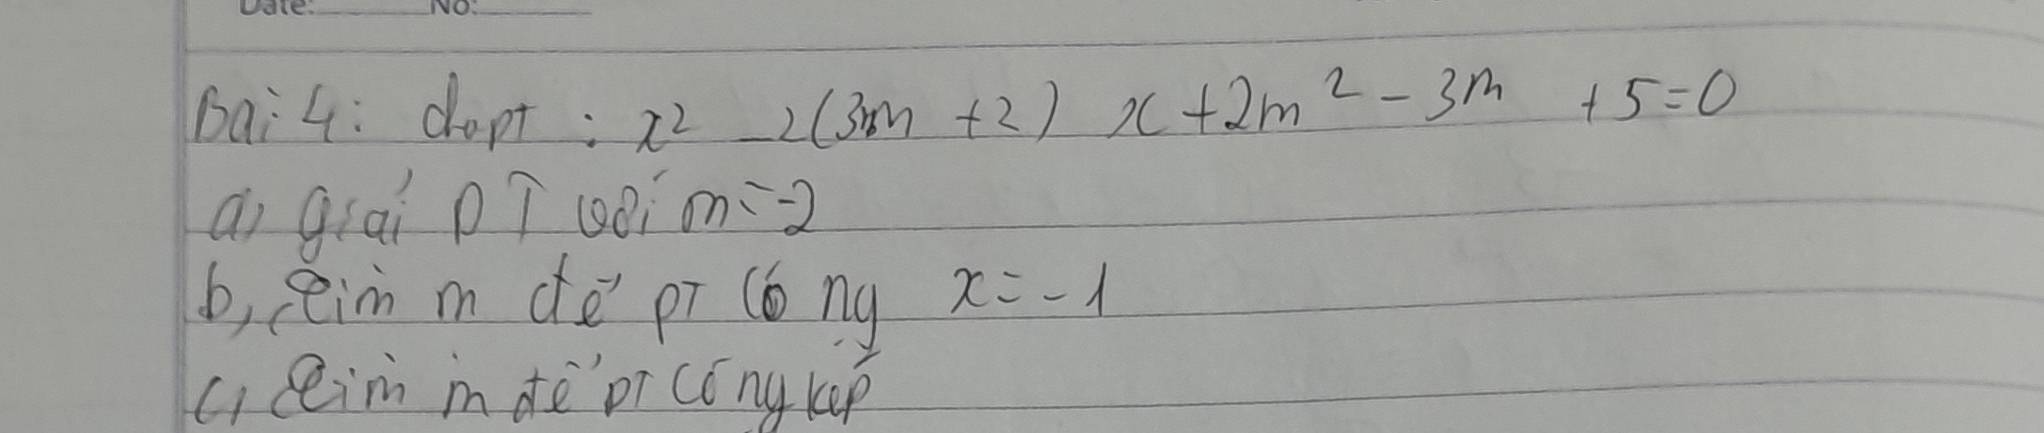 Date: No:
Bài 4: cho pt : x² - 2(3m + 2) x + 2m² - 3m + 5 = 0
a, giải PT với m = -2
b, tìm m để pT có ng x = - 1
c, tìm m để pT có ng kép